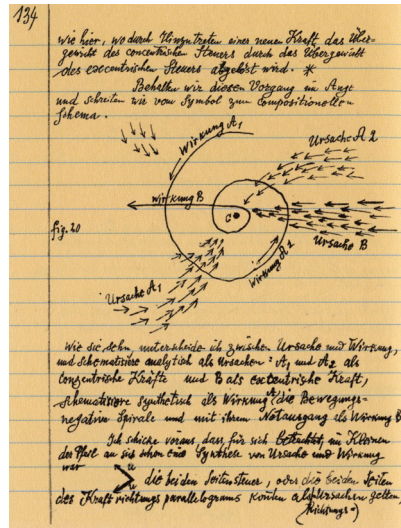 134
wie hier, wo durch Hinzutreten einer neuen Kraft das Über-
gewicht des concentrischen Steuers durch das Übergewicht
des excentrischen Steuers abgelöst wird. *
Behalten wir diesen Vorgang im Auge
und schreiten wir vom Symbol zum Compositionellen
Schema.
Wirkung A1
Ursache A 2
Wirkung B
C
fig. 20
Ursache B
Wirkung A2
Ursache A1
Wie sie sehn, unterscheide ich zwischen Ursache und Wirkung,
und schematisiere analytisch als Ursachen: A1 und A2 als
conzentrische Kräfte und B als excentrische Kraft,
schematisiere synthetisch als Wirkung A die Bewegungs-
negative Spirale und mit ihrem Notausgang als Wirkung B
Ich schicke voraus, dass für sich betrachtet, im Kleinen
der Pfeil an sich schon eine Synthese von Ursache und Wirkung
war
u
u die beiden Seitensteuer, oder die beiden Seiten
des Kraftrichtungsparallelograms konnten als Ursachen gelten,
(Richtungs=)